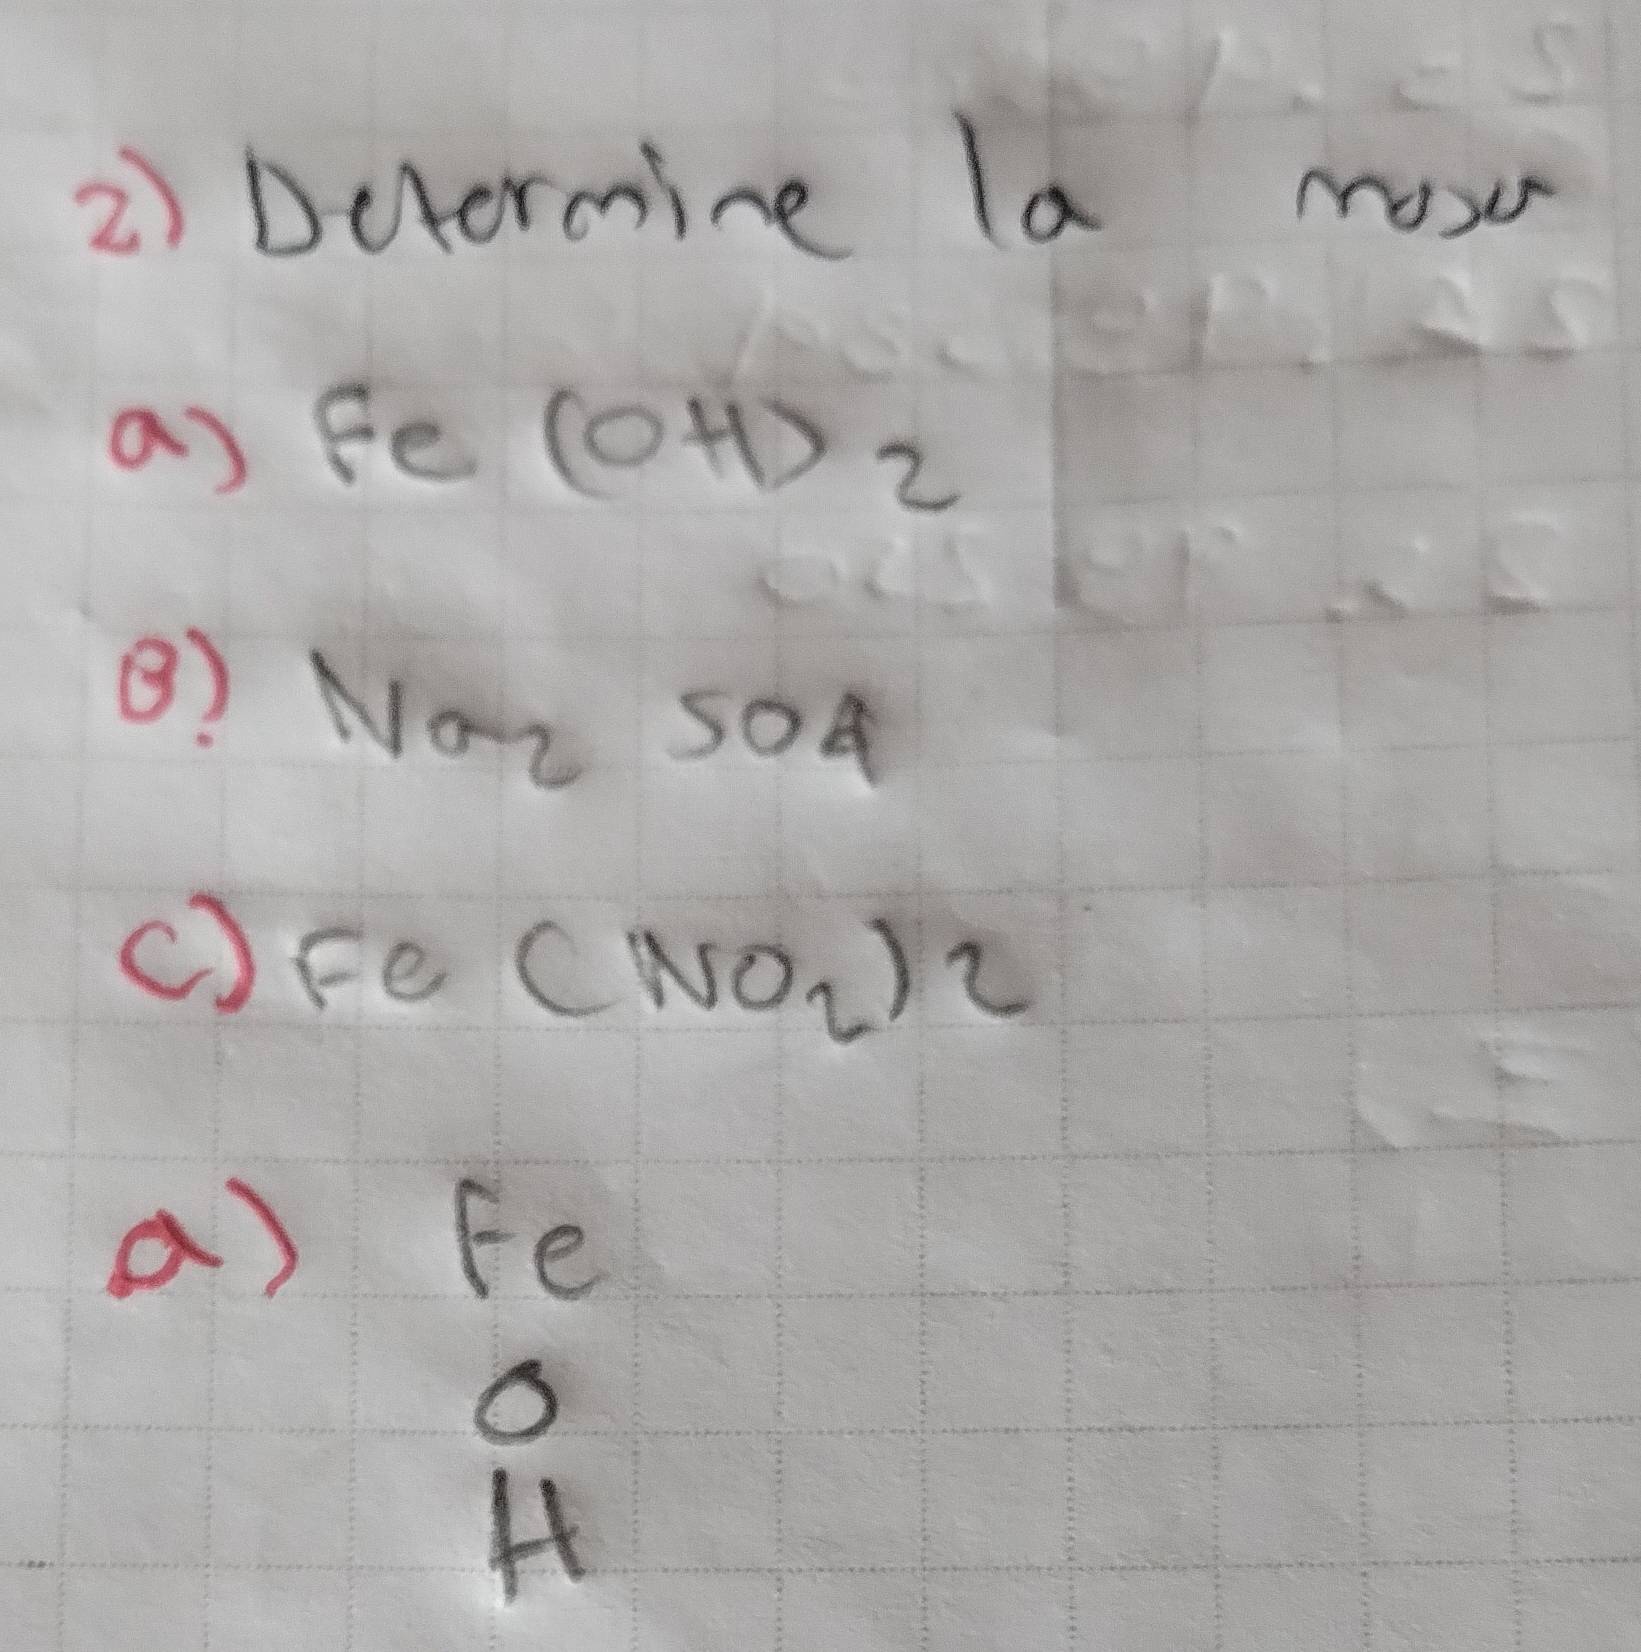 2) Determine la masa
a) Fe (OH)2
B) Na2 SO4
C) Fe (NO2)2
a) Fe
O
H